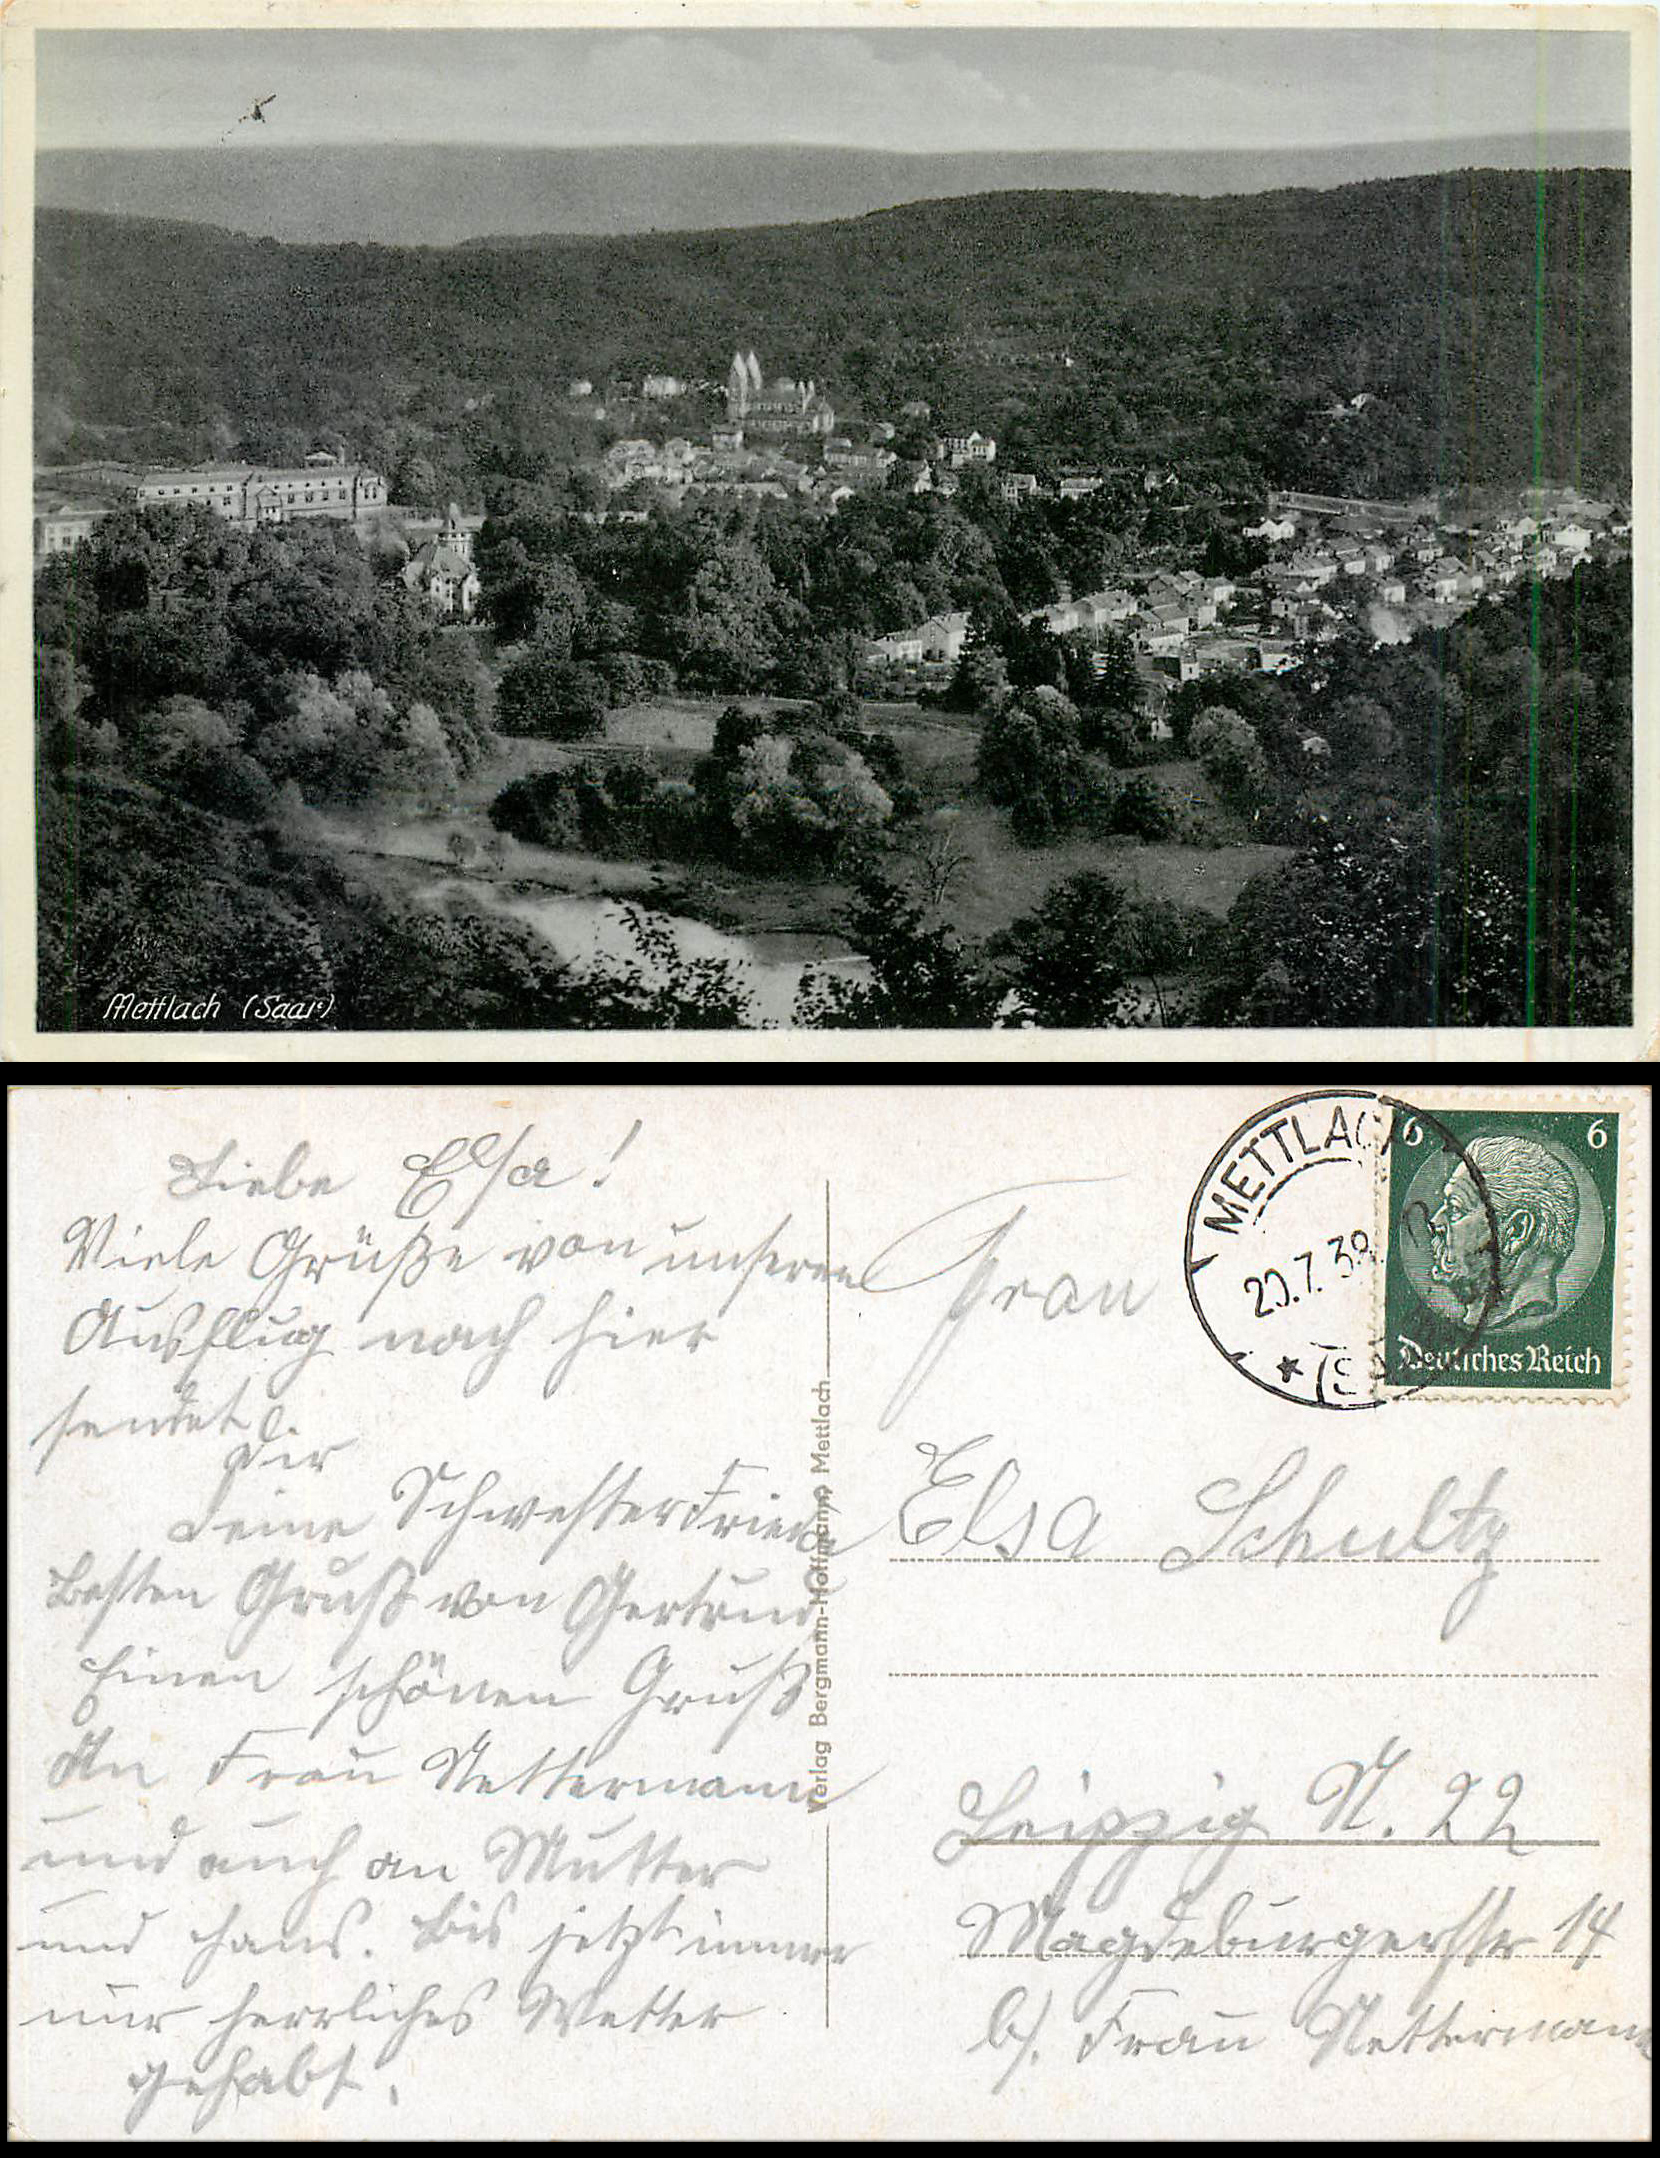 Mettlach (Saar)
Liebe Elsa!
Viele Grüße von unseren
Ausflug nach hier
sendet
Dir
Deine Schwester Frieda
Besten Gruß von Gertrud
Einen schönen Gruß
An Frau Nettermann
und auch an Mutter
und Hans. Bis jetzt immer
nur herrliches Wetter
gehabt.
Verlag Bergmann-Hoffmann, Mettlach
METTLACH
20.7.38
* (Saar)
6 6
Deutsches Reich
Frau
Elsa Schultz
Leipzig N. 22
Magdeburgerstr 14
b/. Frau Nettermann